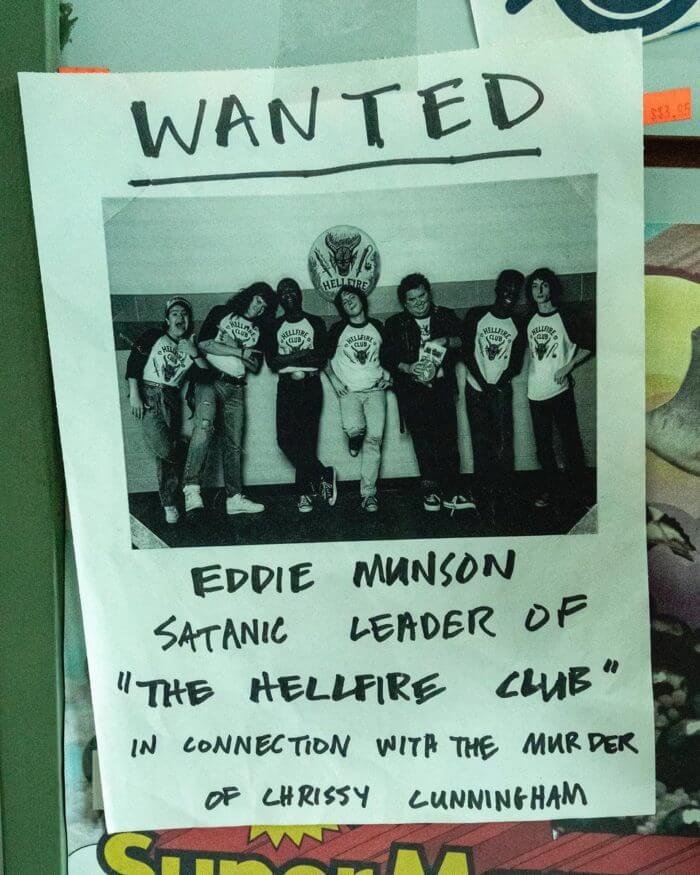 $$3.95
WANTED
HELLFIRE
HELLFIRE
CLUB
HELLFIRE
CLUB
HELLFIRE
CLUB
HELLFIRE
CLUB
HELLFIRE
CLUB
EDDIE MUNSON
SATANIC LEADER OF
"THE HELLFIRE CLUB"
IN CONNECTION WITH THE MURDER
OF CHRISSY CUNNINGHAM
Super M